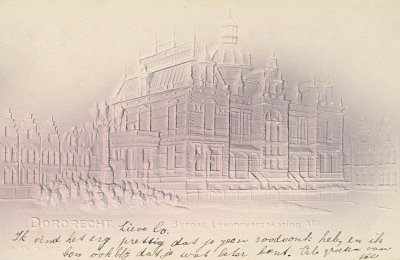 DORDRECHT.
Bureau Levensverzekering Mij.
Lieve Co.
Ik vind het erg prettig dat je geen roodvonk heb, en ik
ben ook blij dat je wat beter bent. Vele groeten van